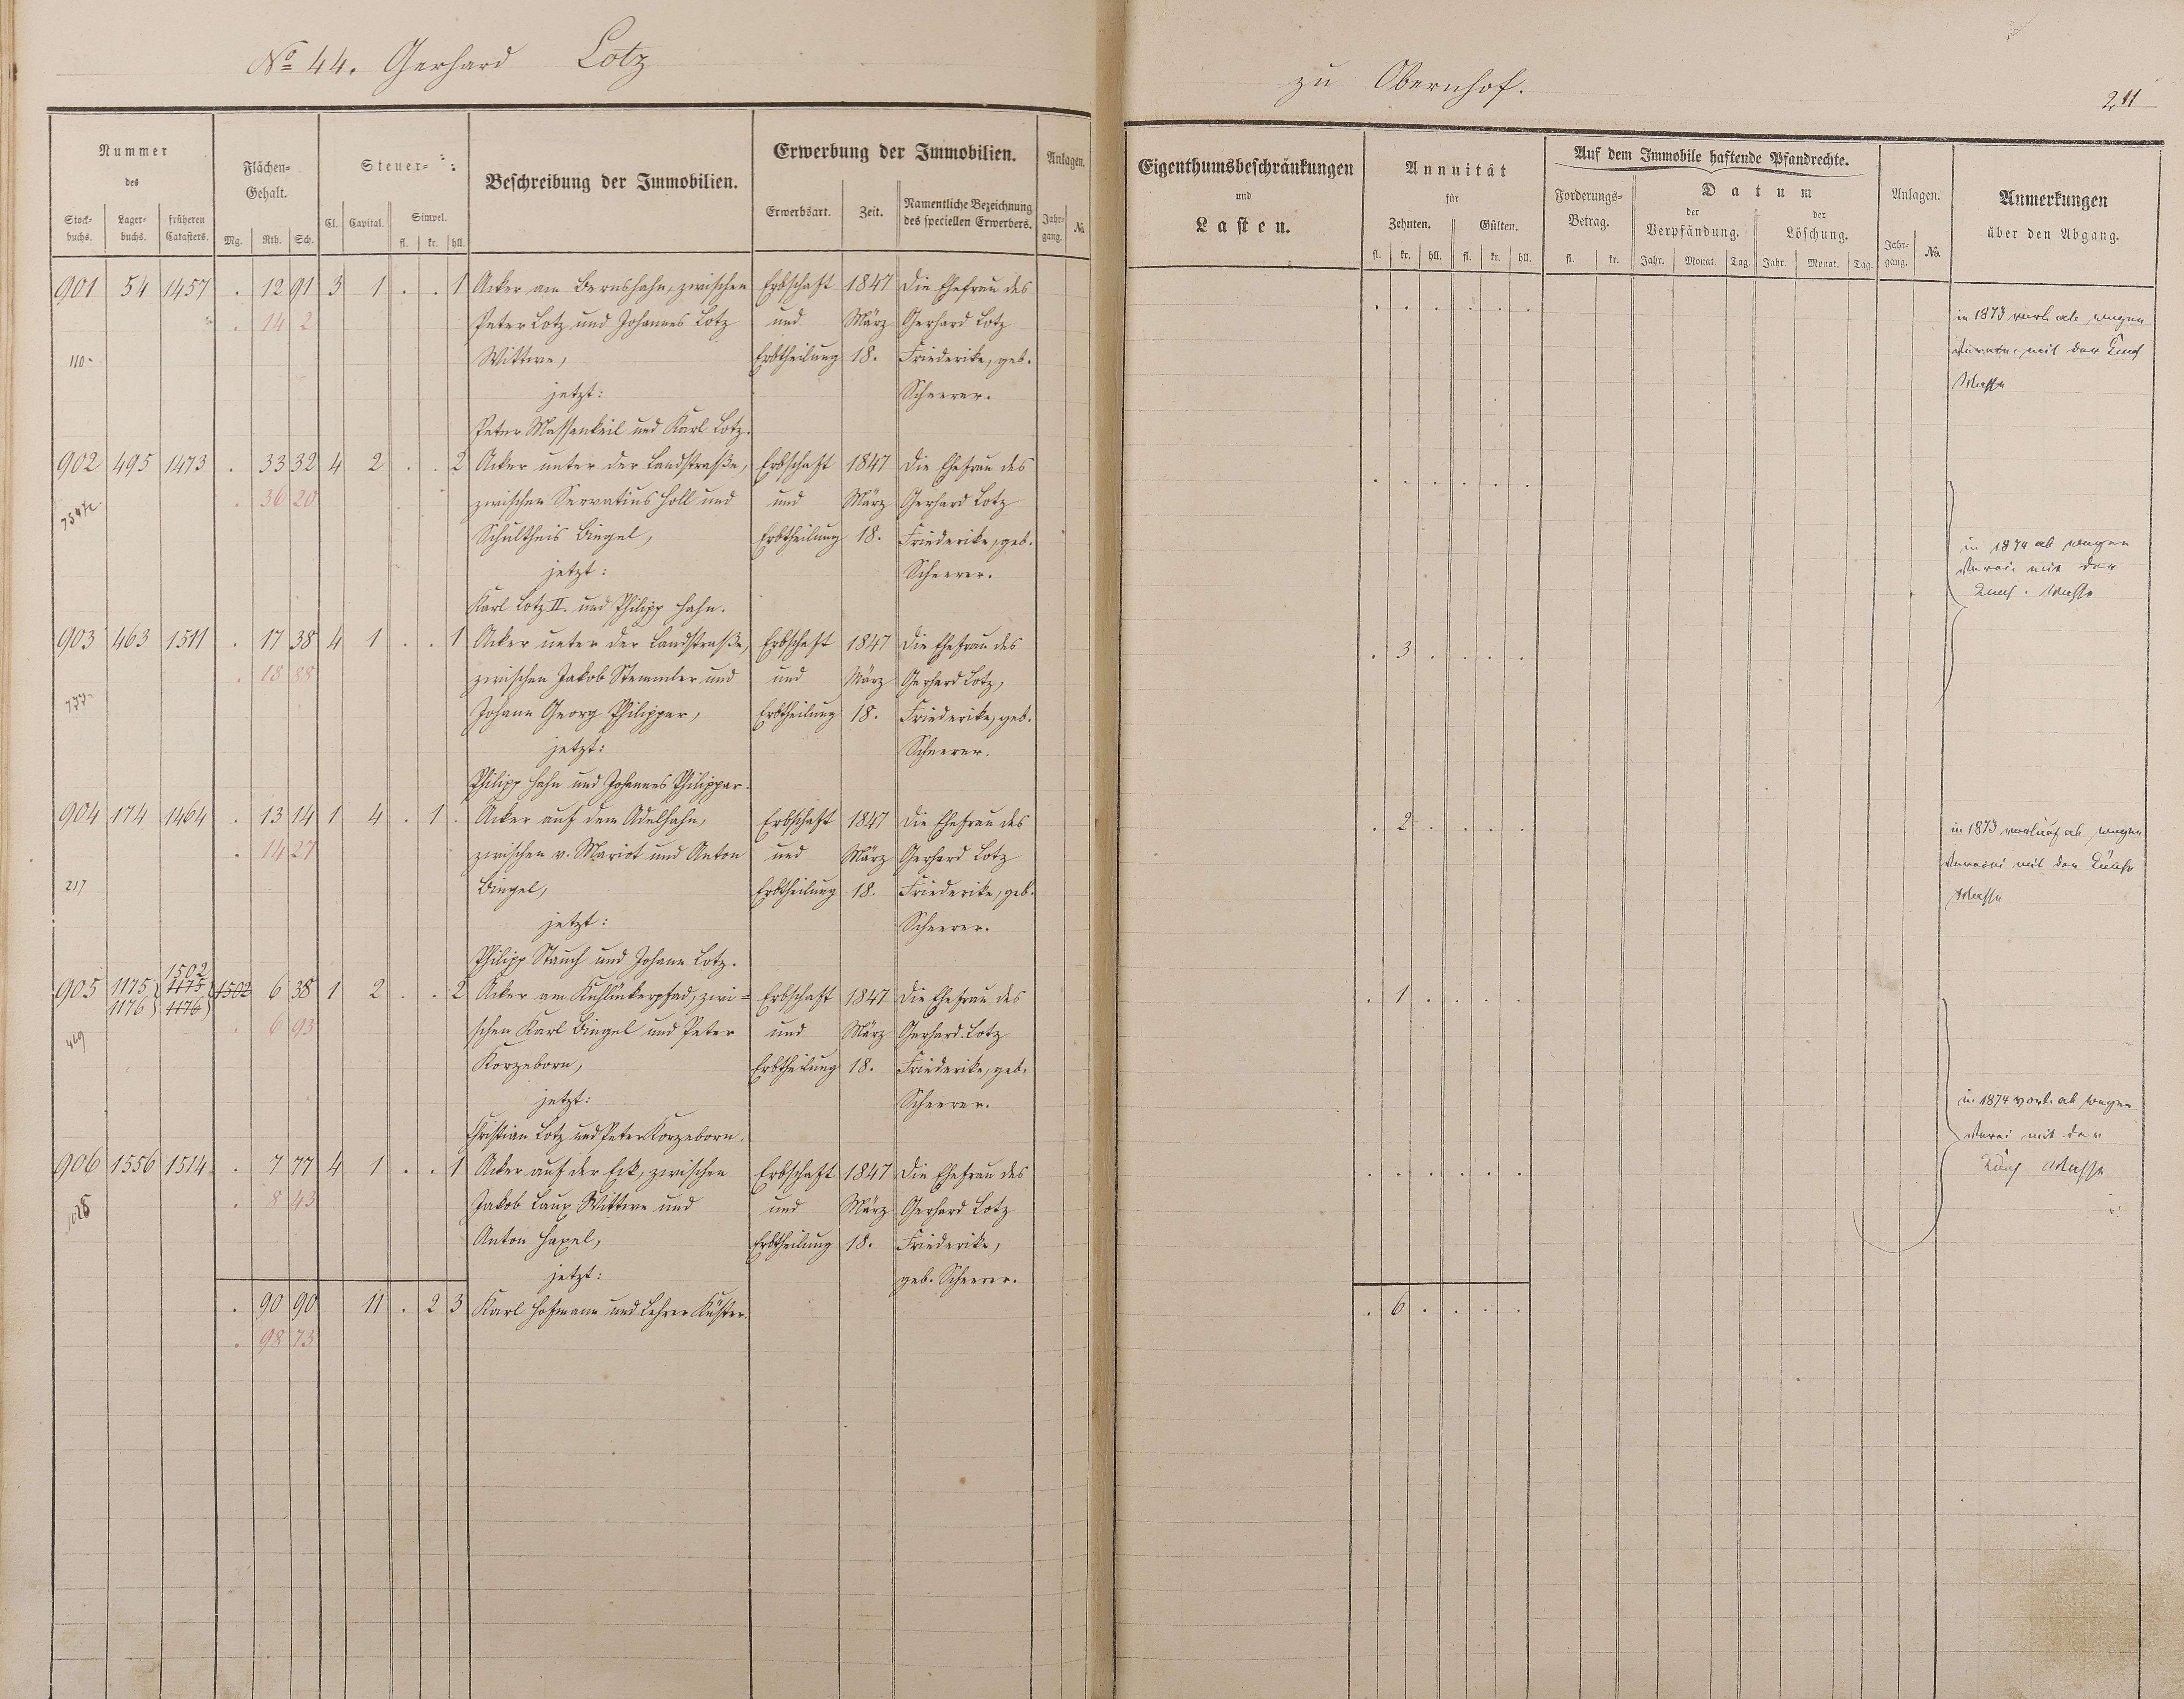 No 44. Gerhard Lotz
zu Obernhof.
211
Nummer
des
Stock-
buchs.
Lager-
buchs.
früheren
Catasters.
Flächen-
Gehalt.
Mg. Rth. Sch.
Steuer-
Cl. Capital. Simpel.
fl. kr. hll.
Beschreibung der Immobilien.
Erwerbung der Immobilien.
Erwerbsart. Zeit. Namentliche Bezeichnung
des speciellen Erwerbers.
Anlagen.
Jahr-
gang. No
Eigenthumsbeschränkungen
und
Lasten.
Annuität
für
Zehnten. Gülten.
fl. kr. hll. fl. kr. hll.
Auf dem Immobile haftende Pfandrechte.
Forderungs-
Betrag.
fl. kr.
Datum
der
Verpfändung.
der
Löschung.
Jahr. Monat. Tag. Jahr. Monat. Tag.
Anlagen.
Jahr-
gang. No.
Anmerkungen
über den Abgang.
901 54 1457 . 12 91 3 1 . . 1 Acker am Bernshahn, zwischen Erbschaft 1847 Die Ehefrau des
. 14 2 Peter Lotz und Johannes Lotz und März Gerhard Lotz
110 Wittwe, Erbtheilung 18. Friederike, geb.
jetzt: Scheerer.
Peter Massenkeil und Karl Lotz.
in 1873 ab, wegen
mit der
Masse
902 495 1473 . 33 32 4 2 . . 2 Acker unter der Landstraße, Erbschaft 1847 Die Ehefrau des
. 36 20 zwischen Servatius Holl und und März Gerhard Lotz
Schultheis Bingel, Erbtheilung 18. Friederike, geb.
jetzt: Scheerer.
Karl Lotz II. und Philipp Hahn.
in 1874 ab wegen
mit der
Masse
903 463 1511 . 17 38 4 1 . . 1 Acker unter der Landstraße, Erbschaft 1847 Die Ehefrau des . 3 . . . .
. 18 88 zwischen Jakob Stemmler und und März Gerhard Lotz,
Johann Georg Philippar, Erbtheilung 18. Friederike, geb.
jetzt: Scheerer.
Philipp Hahn und Johannes Philippar.
904 174 1464 . 13 14 1 4 . 1 . Acker auf dem Adelhahn, Erbschaft 1847 Die Ehefrau des . 2 . . . .
. 14 27 zwischen v. Mariot und Anton und März Gerhard Lotz
217 Bingel, Erbtheilung 18. Friederike, geb.
jetzt: Scheerer.
Philipp Stauch und Johann Lotz.
in 1873 ab, wegen
mit der
Masse
1502
905 1175 1175 1502 6 38 1 2 . . 2 Acker am Kuhlinkerpfad, zwi- Erbschaft 1847 Die Ehefrau des . 1 . . . .
1176 1176
. 6 93 schen Karl Bingel und Peter und März Gerhard Lotz
469 Korzeborn, Erbtheilung 18. Friederike, geb.
jetzt: Scheerer.
Christian Lotz und Peter Korzeborn.
in 1874 ab wegen
mit der
Masse
906 1556 1514 . 7 77 4 1 . . 1 Acker auf der Eck, zwischen Erbschaft 1847 Die Ehefrau des
. 8 43 Jakob Laux Wittwe und und März Gerhard Lotz
1028 Anton Hapel, Erbtheilung 18. Friederike,
jetzt: geb. Scheerer.
. 90 90 11 . 2 3 Karl Hofmann und Lehrer Küster. . 6 . . . .
. 98 73